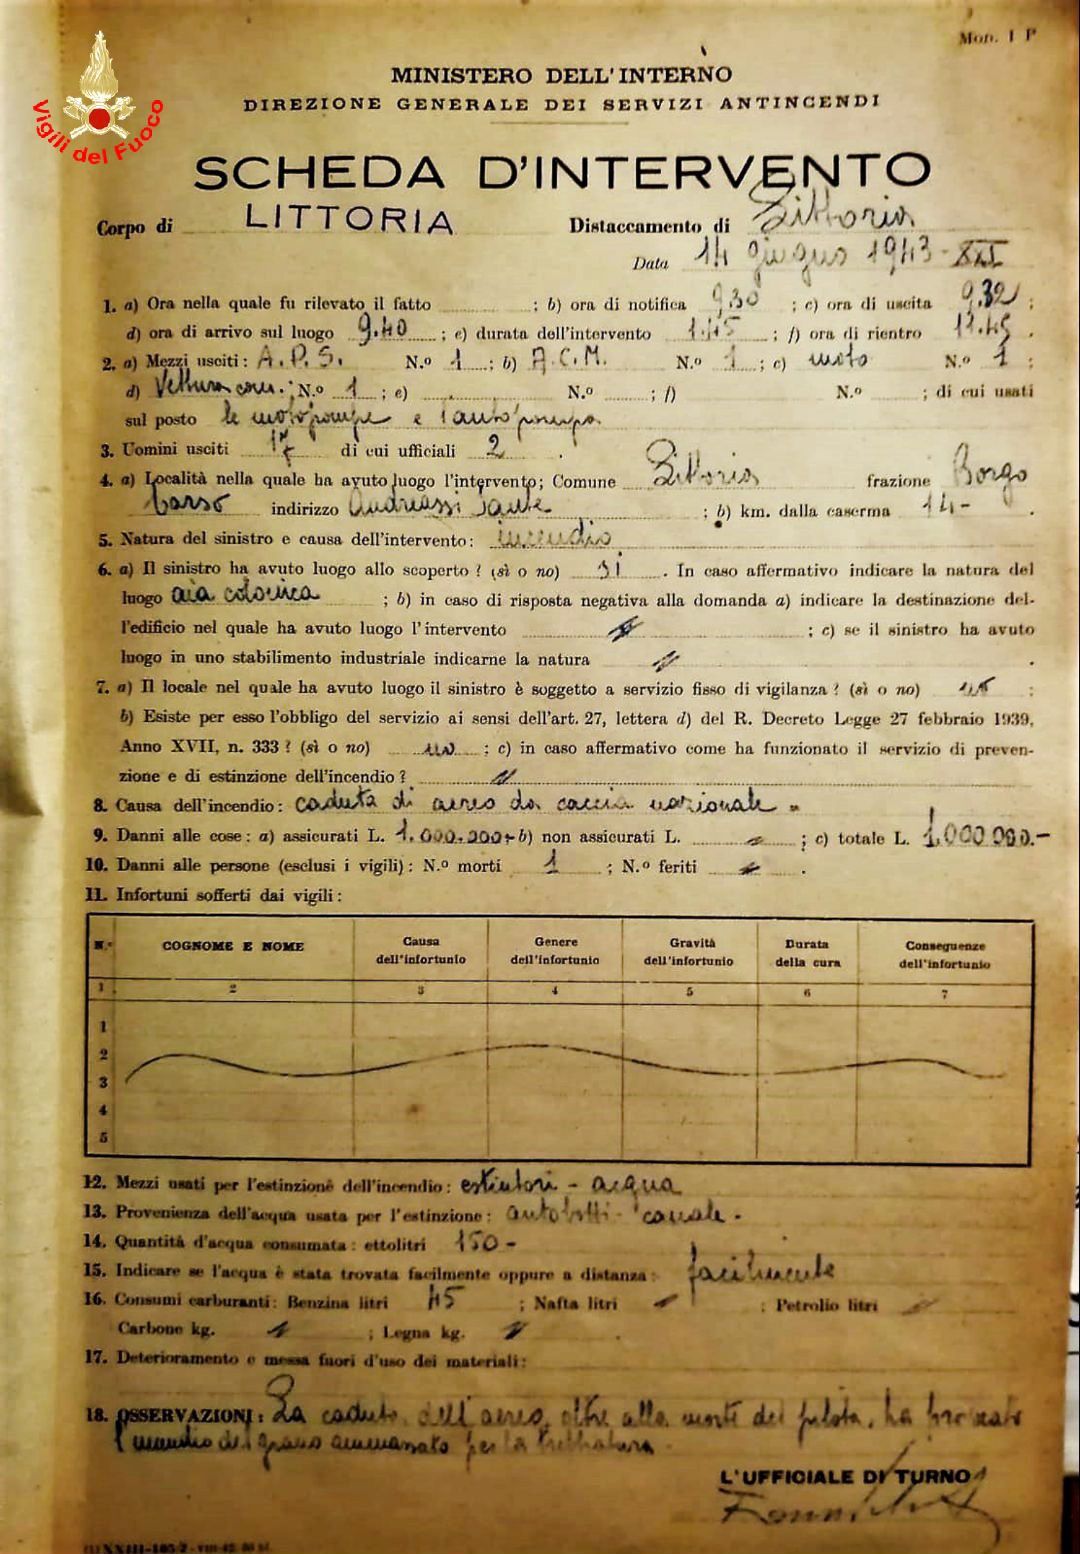 Mod. 1 P
Vigili del Fuoco
MINISTERO DELL'INTERNO
DIREZIONE GENERALE DEI SERVIZI ANTINCENDI
SCHEDA D'INTERVENTO
Corpo di LITTORIA Distaccamento di Littoria
Data 14 giugno 1943-XXI
1. a) Ora nella quale fu rilevato il fatto ; b) ora di notifica 9,30 ; c) ora di uscita 9,32 ;
d) ora di arrivo sul luogo 9.40 ; e) durata dell'intervento 1.45 ; f) ora di rientro 11.45 .
2. a) Mezzi usciti: A.P.S. N.º 1 ; b) A.C.M. N.º 1 ; c) moto N.º 1 ;
d) Vettura com. ; N.º 1 ; e) N.º ; f) N.º ; di cui usati
sul posto le motopompe e l'autopompa
3. Uomini usciti 17 di cui ufficiali 2 .
4. a) Località nella quale ha avuto luogo l'intervento; Comune Littoria frazione Borgo
Carso indirizzo Andreassi Sante ; b) km. dalla caserma 14- .
5. Natura del sinistro e causa dell'intervento: incendio
6. a) Il sinistro ha avuto luogo allo scoperto? (sì o no) si . In caso affermativo indicare la natura del
luogo aia colonica ; b) in caso di risposta negativa alla domanda a) indicare la destinazione del-
l'edificio nel quale ha avuto luogo l'intervento ; c) se il sinistro ha avuto
luogo in uno stabilimento industriale indicarne la natura .
7. a) Il locale nel quale ha avuto luogo il sinistro è soggetto a servizio fisso di vigilanza? (sì o no) no ;
b) Esiste per esso l'obbligo del servizio ai sensi dell'art. 27, lettera d) del R. Decreto Legge 27 febbraio 1939,
Anno XVII, n. 333? (sì o no) no ; c) in caso affermativo come ha funzionato il servizio di preven-
zione e di estinzione dell'incendio?
8. Causa dell'incendio: caduta di aereo da caccia nazionale
9. Danni alle cose: a) assicurati L. 1.000.000- b) non assicurati L. ; c) totale L. 1.000.000.-
10. Danni alle persone (esclusi i vigili): N.º morti 1 ; N.º feriti .
11. Infortuni sofferti dai vigili:
N.º COGNOME E NOME Causa dell'infortunio Genere dell'infortunio Gravità dell'infortunio Durata della cura Conseguenze dell'infortunio
1 2 3 4 5 6 7
1
2
3
4
5
12. Mezzi usati per l'estinzione dell'incendio: estintori - acqua
13. Provenienza dell'acqua usata per l'estinzione: autobotti - canale -
14. Quantità d'acqua consumata: ettolitri 150 -
15. Indicare se l'acqua è stata trovata facilmente oppure a distanza: facilmente
16. Consumi carburanti: Benzina litri 45 ; Nafta litri ; Petrolio litri
Carbone kg. ; Legna kg. .
17. Deterioramento e messa fuori d'uso dei materiali:
18. OSSERVAZIONI: La caduta dell'aereo, oltre alla morte del pilota, ha provocato
l'incendio del grano ammassato per la trebbiatura -
L'UFFICIALE DI TURNO